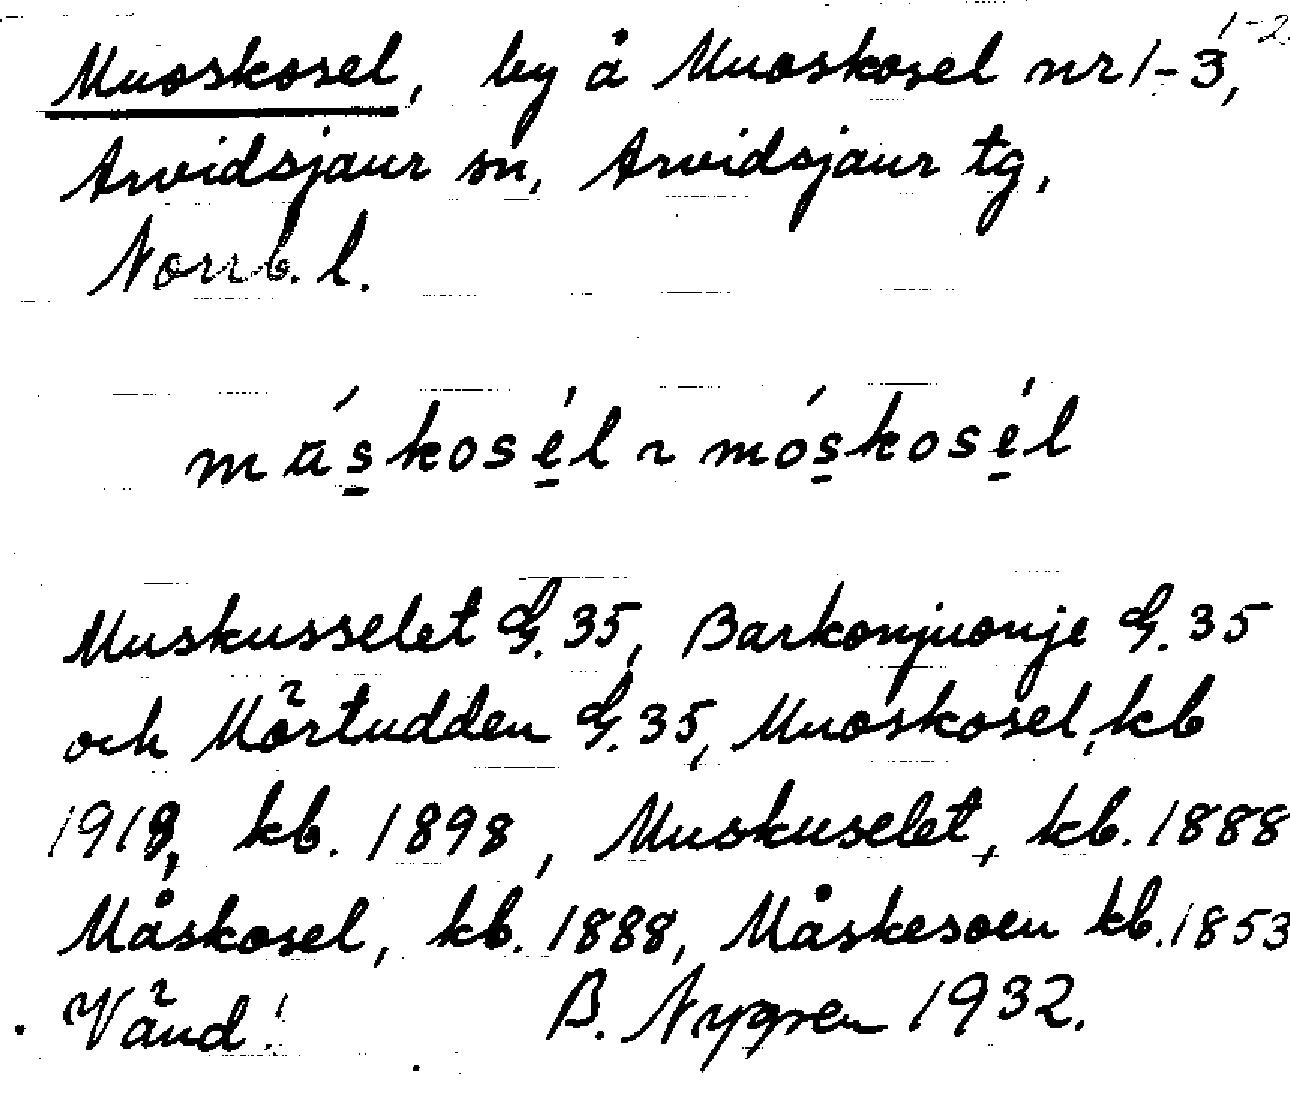 1-2
Muoskosel, by å Muoskosel nr 1-3,
Arvidsjaur sn, Arvidsjaur tg,
Norrb. l.
máskosél ~ móskosél
Muskusselet G. 35, Barkonjuonje G. 35
och Mörtudden G. 35, Muoskosel, kb
1918, kb. 1898, Muskuselet, kb. 1888
Måskosel, kb. 1888, Måskesoen kb. 1853
Vänd! B. Nygren 1932.